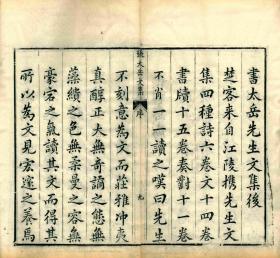 書太岳先生文集後
楚客来自江陵攜先生文
集四種詩六卷文十四卷
書牘十五卷奏對十一卷
不肖一一讀之嘆曰先生
張太岳文集
序
九
不刻意為文而莊雅冲夷
真醇正大無奇譎之態無
藻繢之色無柔曼之容無
豪宕之氣讀其文而得其
所以為文見宏邃之養焉